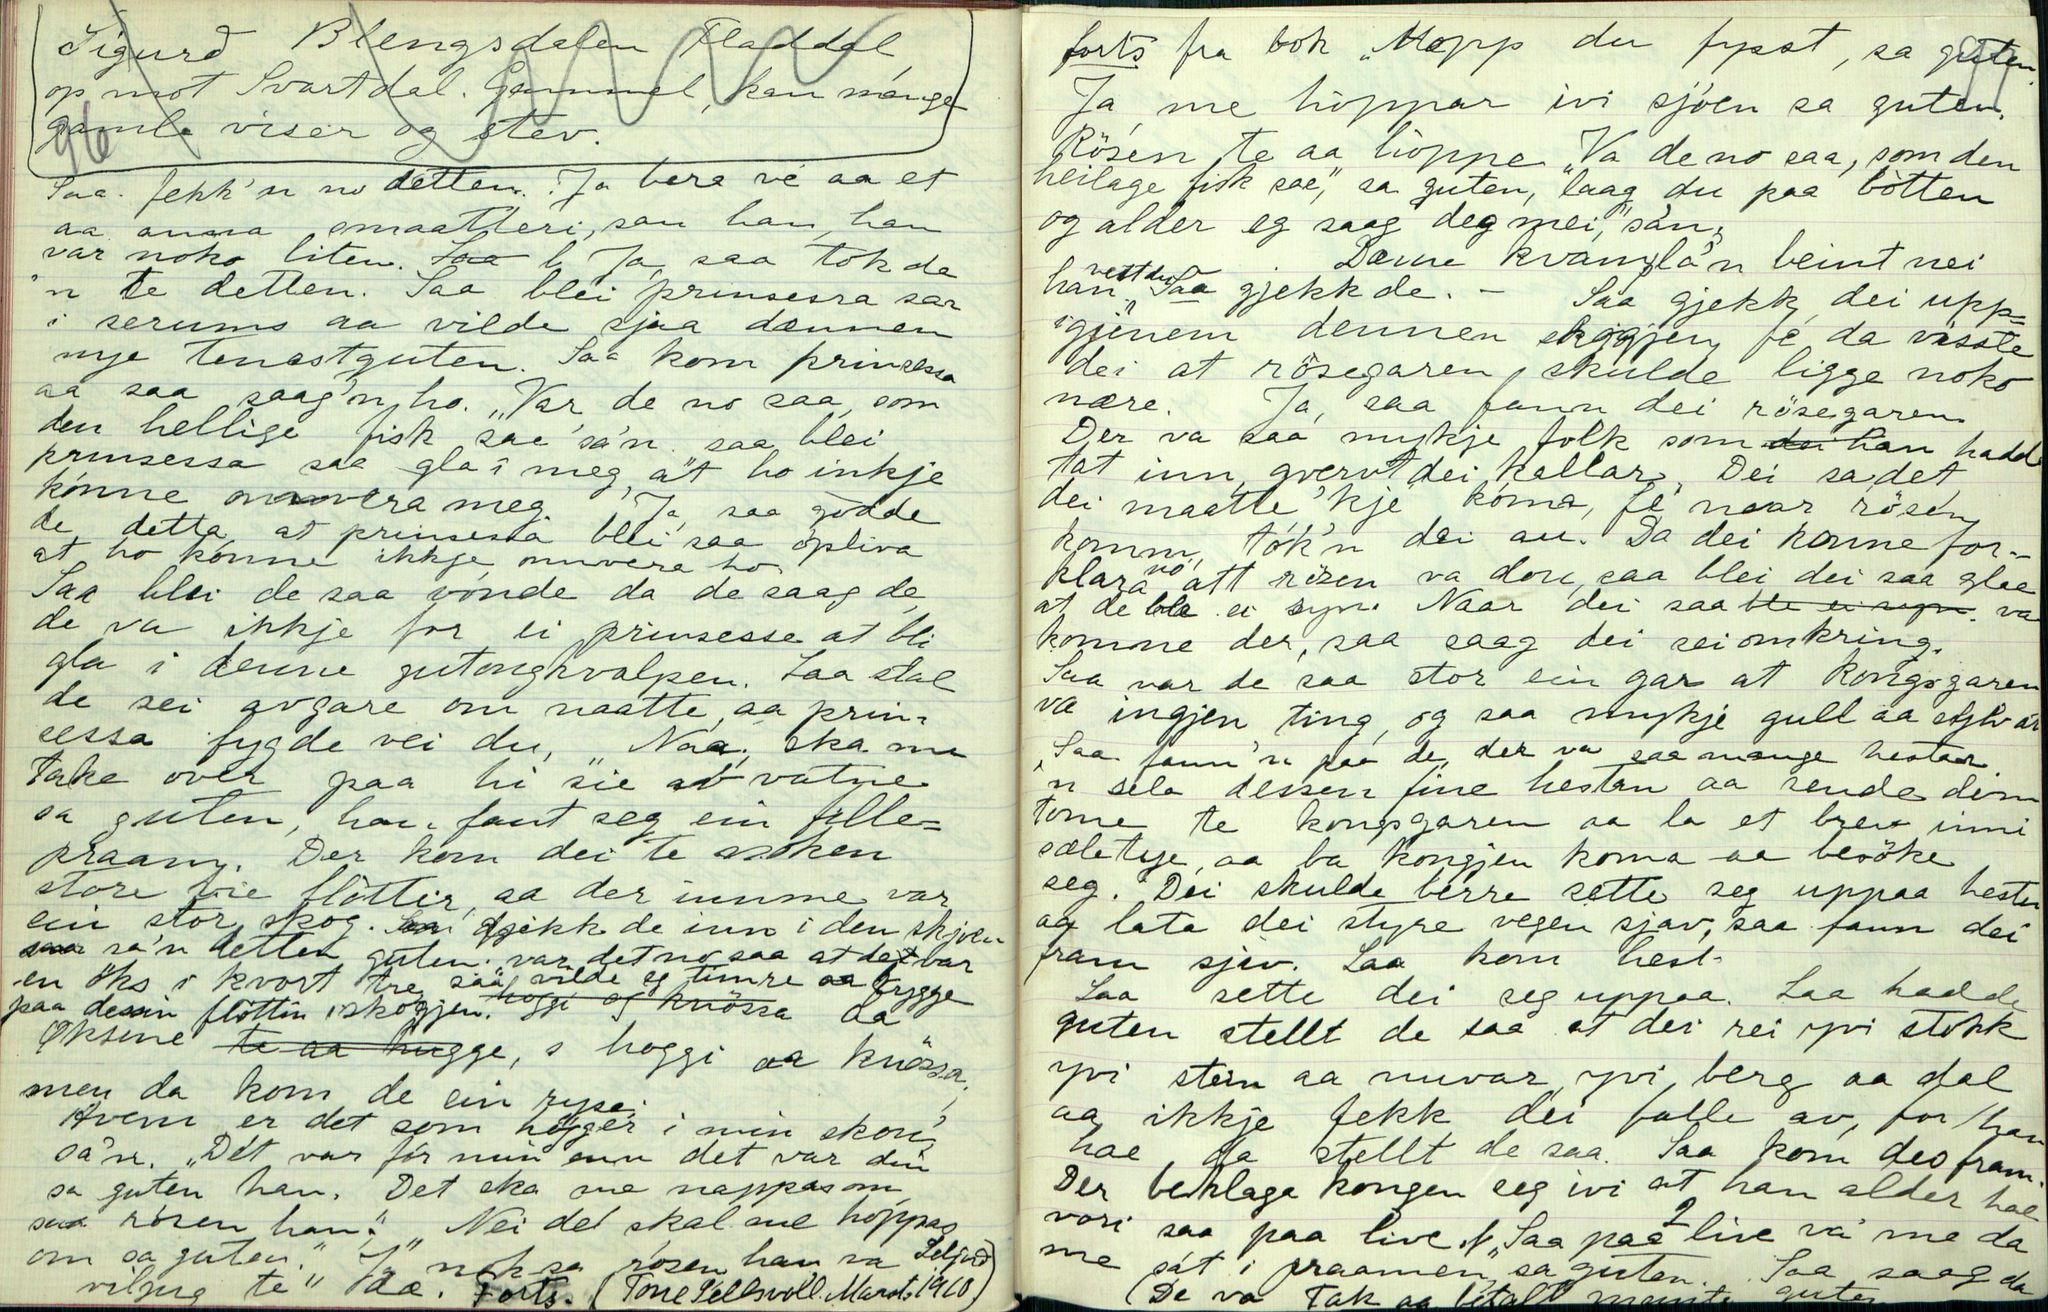 Sigurd Blengsdalen Fladdal
op mot Svartdal. Gammel, kan mange
gamle viser og stev.
96
Saa fekk'n no detten. Ja bera ve aa et
aa anna smaatteri, san han, han
var noko liten. Saa b Ja, saa tok de
'n te detten. Saa blei prinsessa sar
i serums aa vilde sjaa dennen
nye tenastguten. Saa kom prinsessa
aa saa saag'n ho. "Var de no saa, som
den hellige fisk sae" sa'n "saa blei
prinsessa saa gla i meg, at ho inkje
konne onnvera meg. Ja, saa godde
de detta at prinsessa blei saa opliva
at ho konne ikkje onnvere ho.
Saa blei de saa vonde da de saag de,
de va ikkje for ei prinsesse at bli
gla i denne gutonghvalpen. Saa stal
de sei avgare om naatte, aa prin-
sessa fygde vei du, Naa, ska me
take over paa hi sie av vatne
sa guten, han fant seg ein fille-
praam. Der kom dei te noken
store vie flotter, aa der innme var
ein stor skog. Saa gjekk de inn i den skjoen
saa sa'n detten guten. var det no saa at det var
en öks i kvort tre, saa vilde eg timre aa bygge
paa dessin flottin i skogjen. hoggi og knössa aa
Øksene te aa hugge, s hoggi aa knössa,
men da kom de ein ryse.
Hvem er det som högger i min skog,
sa'n. "Det var för min enn det var din
sa guten han. Det ska me nappas om
saa rösen han." "Nei det skal me hoppas
om sa guten." "Ja" nok sa rösen han va
viljug te" da. Forts. (Tone Seltvoll. Marst. 1910) Seljord
forts fra bok "Hopp du fysst, sa guten.
Ja, me hoppar ivi sjoen sa guten.
Rösen te aa hoppe. "Va de no saa, som den
heilage fisk sae," sa guten, "laag du paa botten
og alder eg saag deg mei," sa'n.
Dæme kvamla'n beint nei
han, vett du Saa gjekk de. - Saa gjekk dei upp-
igjönem dennen skogjen, fe da visste
dei at rösegaren skulde ligge noko
nære. Ja, saa fann dei rösegaren.
Der va saa mykje folk som dei han hadd
tat inn, dei kallar. Dei sa det
dei maatte 'kje koma, fe naar rösen
komm, tok'n dei au. Da dei konne for-
klara no att rösen va dou, saa blei dei saa glae
at de ble ei syn. Naar dei saa ble ei syn. va
komne der, saa saag dei sei omkring.
Saa var de saa stor ein gar at kongsgaren
va ingjen ting, og saa mykje gull aa sylv ar
Saa fann'n paa de, der va saa mange hestar
'n sela dessen fine hestan aa sende deim
tome te kongsgaren aa la et brev inni
sæletye, aa ba kongjen koma aa besöke
seg. Dei skulde berre sette seg uppaa hesten
aa lata dei styre vegen sjav, saa fann dei
fram sjav. Saa kom hest-
Saa sette dei seg uppaa. Saa hadde
guten stellt de saa at dei rei yvi stokk
yvi stein aa muvar, yvi berg aa dal
aa ikkje fekk dei falle av, for han
hae da stellt de saa. Saa kom deo fram.
Der beklaga kongen seg ivi at han alder hae
vori saa paa live. "Saa paa live va me da
me sat i praamen, sa guten. Saa saag da
(De va Tak aa betalt mente guten